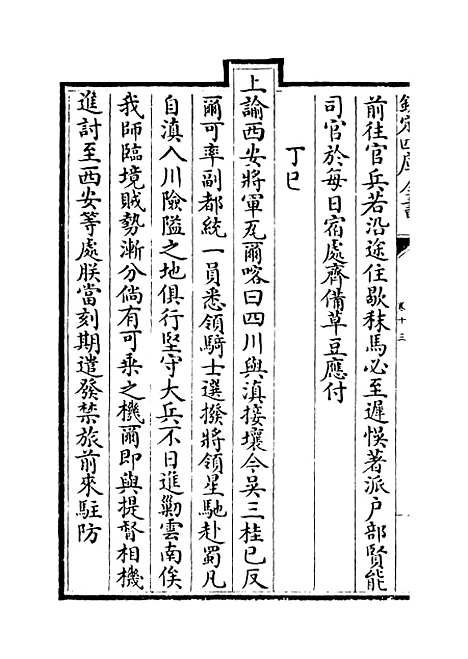 欽定四庫全書
卷十三
前往官兵若沿途住歇秣馬必至遲悞著派户部賢能
司官於每日宿處齊備草豆應付
丁巳
上諭西安將軍瓦爾喀曰四川與滇接壤今吳三桂已反
爾可率副都統一員悉領騎士選撥將領星馳赴蜀凡
自滇入川險隘之地俱行堅守大兵不日進勦雲南俟
我師臨境賊勢漸分倘有可乗之機爾即與提督相機
進討至西安等處朕當刻期遣發禁旅前來駐防